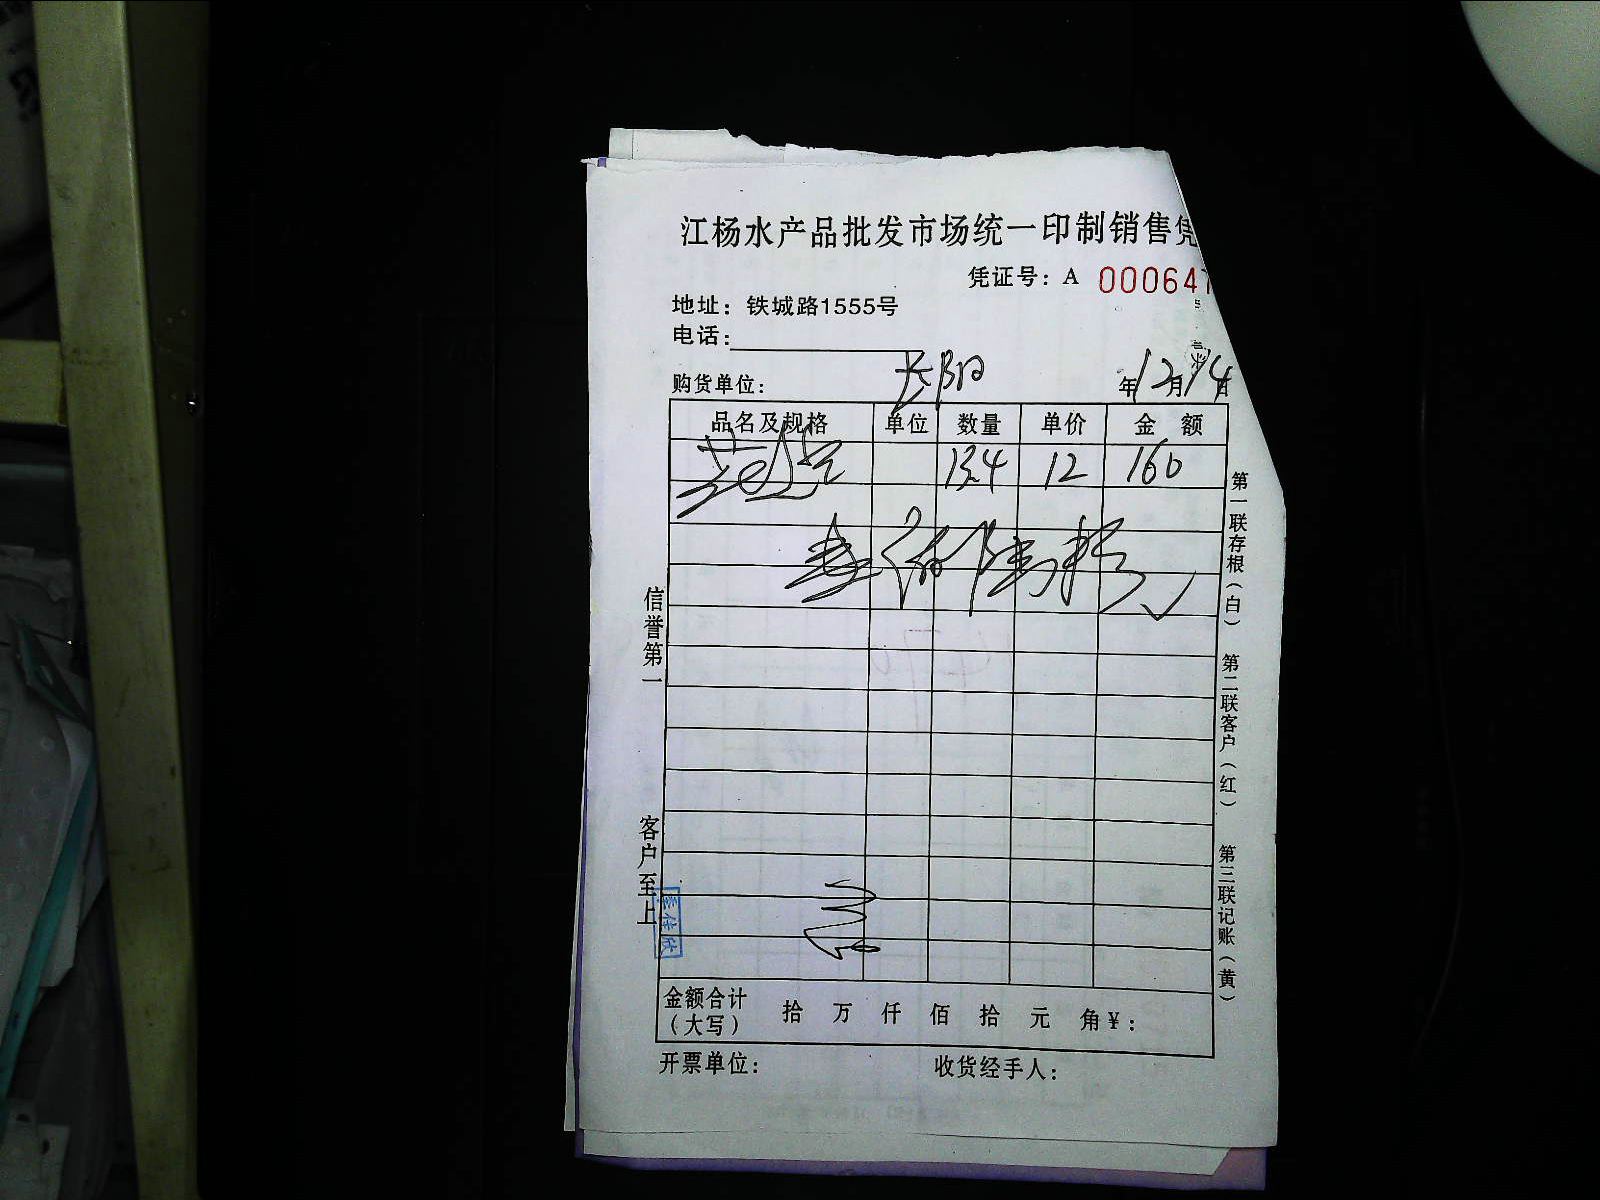 江杨水产品批发市场统一印制销售凭
凭证号: A 000647
地址: 铁城路1555号
电话:
购货单位: 长阳 年12月14日
品名及规格 单位 数量 单价 金 额
13.4 12 160
壹佰陆拾元
金额合计
(大写) 拾 万 仟 佰 拾 元 角 ¥:
开票单位: 收货经手人:
信誉第一
客户至上
第一联存根(白) 第二联客户(红) 第三联记账(黄)